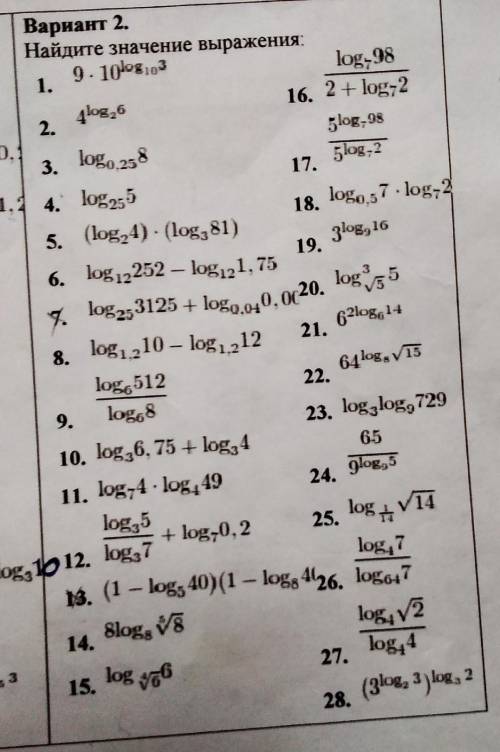 Вариант 2.
Найдите значение выражения:
1. 9 · 10^{log_{10}3}
2. 4^{log_2 6}
3. log_{0,25}8
4. log_{25}5
5. (log_2 4) · (log_3 81)
6. log_{12}252 − log_{12}1,75
7. log_{25}3125 + log_{0,04}0,00
8. log_{1,2}10 − log_{1,2}12
9. \frac{log_6 512}{log_6 8}
10. log_3 6,75 + log_3 4
11. log_7 4 · log_4 49
12. \frac{log_3 5}{log_3 7} + log_7 0,2
13. (1 − log_5 40)(1 − log_8 40
14. 8log_8 \sqrt[5]{8}
15. log_{\sqrt[4]{6}}6
16. \frac{log_7 98}{2 + log_7 2}
17. \frac{5^{log_7 98}}{5^{log_7 2}}
18. log_{0,5}7 · log_7 2
19. 3^{log_9 16}
20. log^3_{\sqrt{5}}5
21. 6^{2log_6 14}
22. 64^{log_8 \sqrt{15}}
23. log_3 log_9 729
24. \frac{65}{9^{log_9 5}}
25. log_{\frac{1}{14}}\sqrt{14}
26. \frac{log_4 7}{log_{64}7}
27. \frac{log_4 \sqrt{2}}{log_4 4}
28. (3^{log_2 3})^{log_3 2}